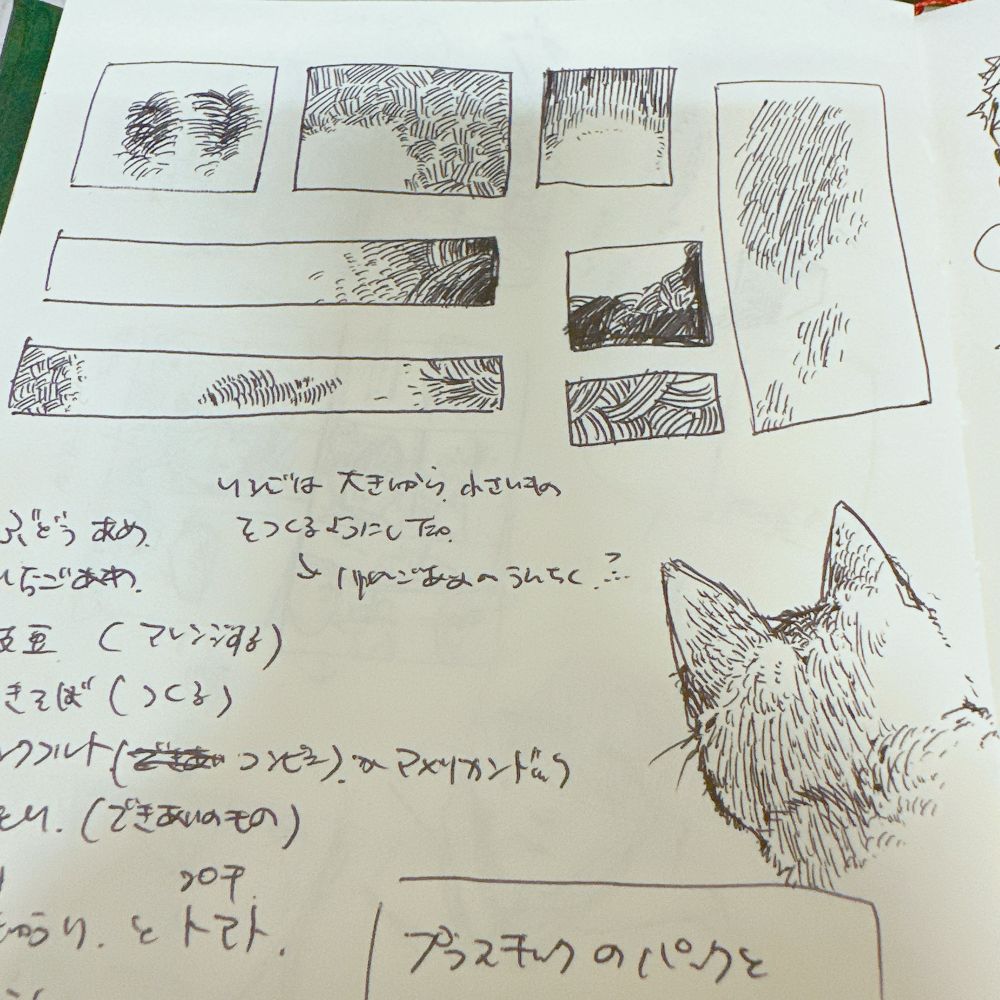 りんごは 大きいから、小さいもの
をつくるようにした。
ぶどうあめ。
いちごあめ。
→ りんごあめのうんちく。?
枝豆 (アレンジする)
きそば (つくる)
ンクフルト(コンビニ)。か アメリカンドッグ
(できあいのもの)
きゅうり。と トマト。
プラスチックのパックと